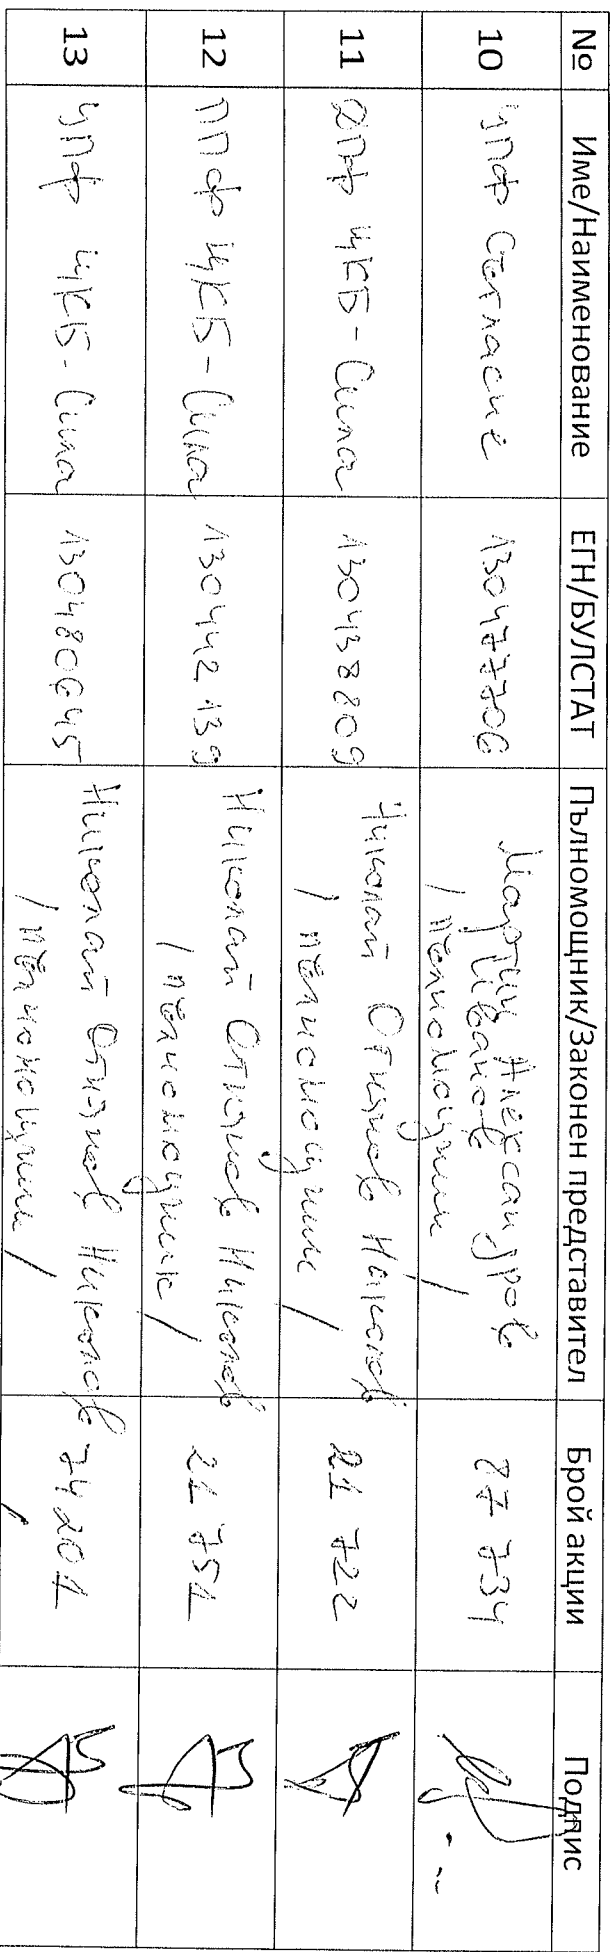 № Име/Наименование ЕГН/БУЛСТАТ Пълномощник/Законен представител Брой акции Подпис
10 УПФ Съгласие 130477706 Мартин Александров Иванов /пълномощник/ 87 734
11 ДПФ ЦКБ-Сила 130438809 Николай Огнянов Николов /пълномощник/ 21 722
12 ППФ ЦКБ-Сила 130442139 Николай Огнянов Николов /пълномощник/ 21 751
13 УПФ ЦКБ-Сила 130480645 Николай Огнянов Николов /пълномощник/ 74 201